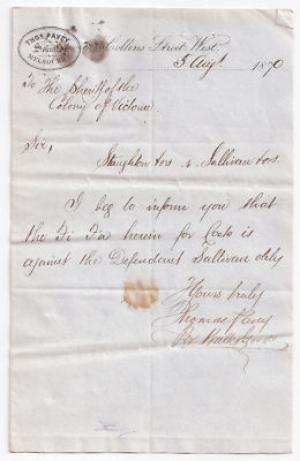 THOS PAVEY
MELBOURNE
Collins Street West
5 Augt 1870
To The Sheriff of the
Colony of Victoria
Sir,
Staughton & ors v. Sullivan & ors
I beg to inform you that
the Fi Fa herein for Costs is
against the Defendant Sullivan only
Yours truly
Thomas Pavey
Per